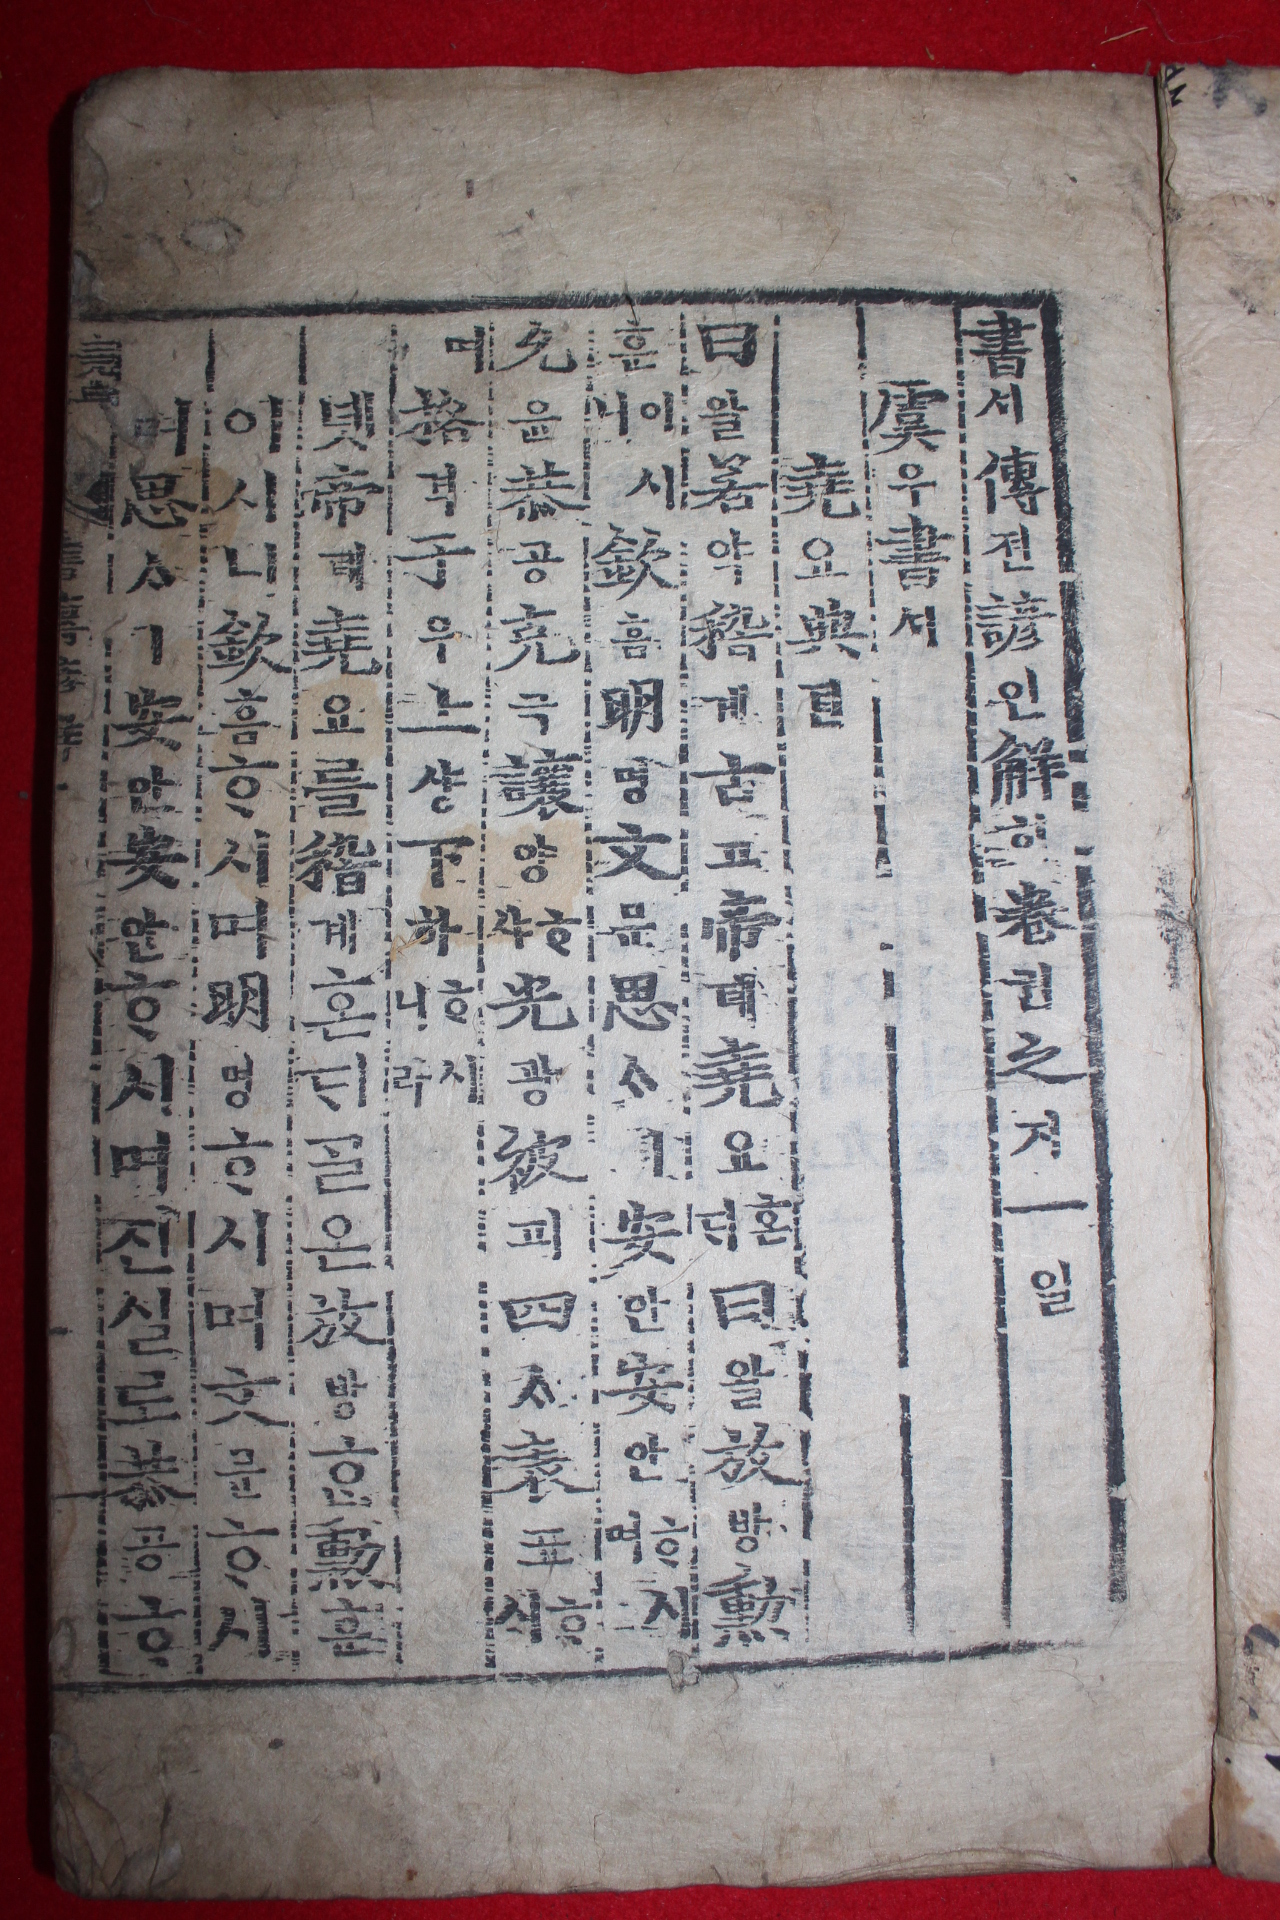 書셔傳젼諺언解ᄒᆡ卷권之지一일
虞우書셔
堯요典뎐
曰왈若약稽계古고帝뎨堯요혼ᄃᆡ曰왈放방勳
훈이시니欽흠明명文문思ᄉᆞㅣ安안安안ᄒᆞ시며
允윤恭공克극讓양ᄒᆞ샤光광被피四ᄉᆞ表표ᄒᆞ시
며格격于우上샹下하ᄒᆞ시니라
녯帝뎨堯요를稽계혼ᄃᆡ ᄀᆞᆯ온放방ᄒᆞᆫ勳훈
이시니欽흠ᄒᆞ시며明명ᄒᆞ시며文문ᄒᆞ시
며思ᄉᆞㅣ安안安안ᄒᆞ시며진실로恭공ᄒᆞ